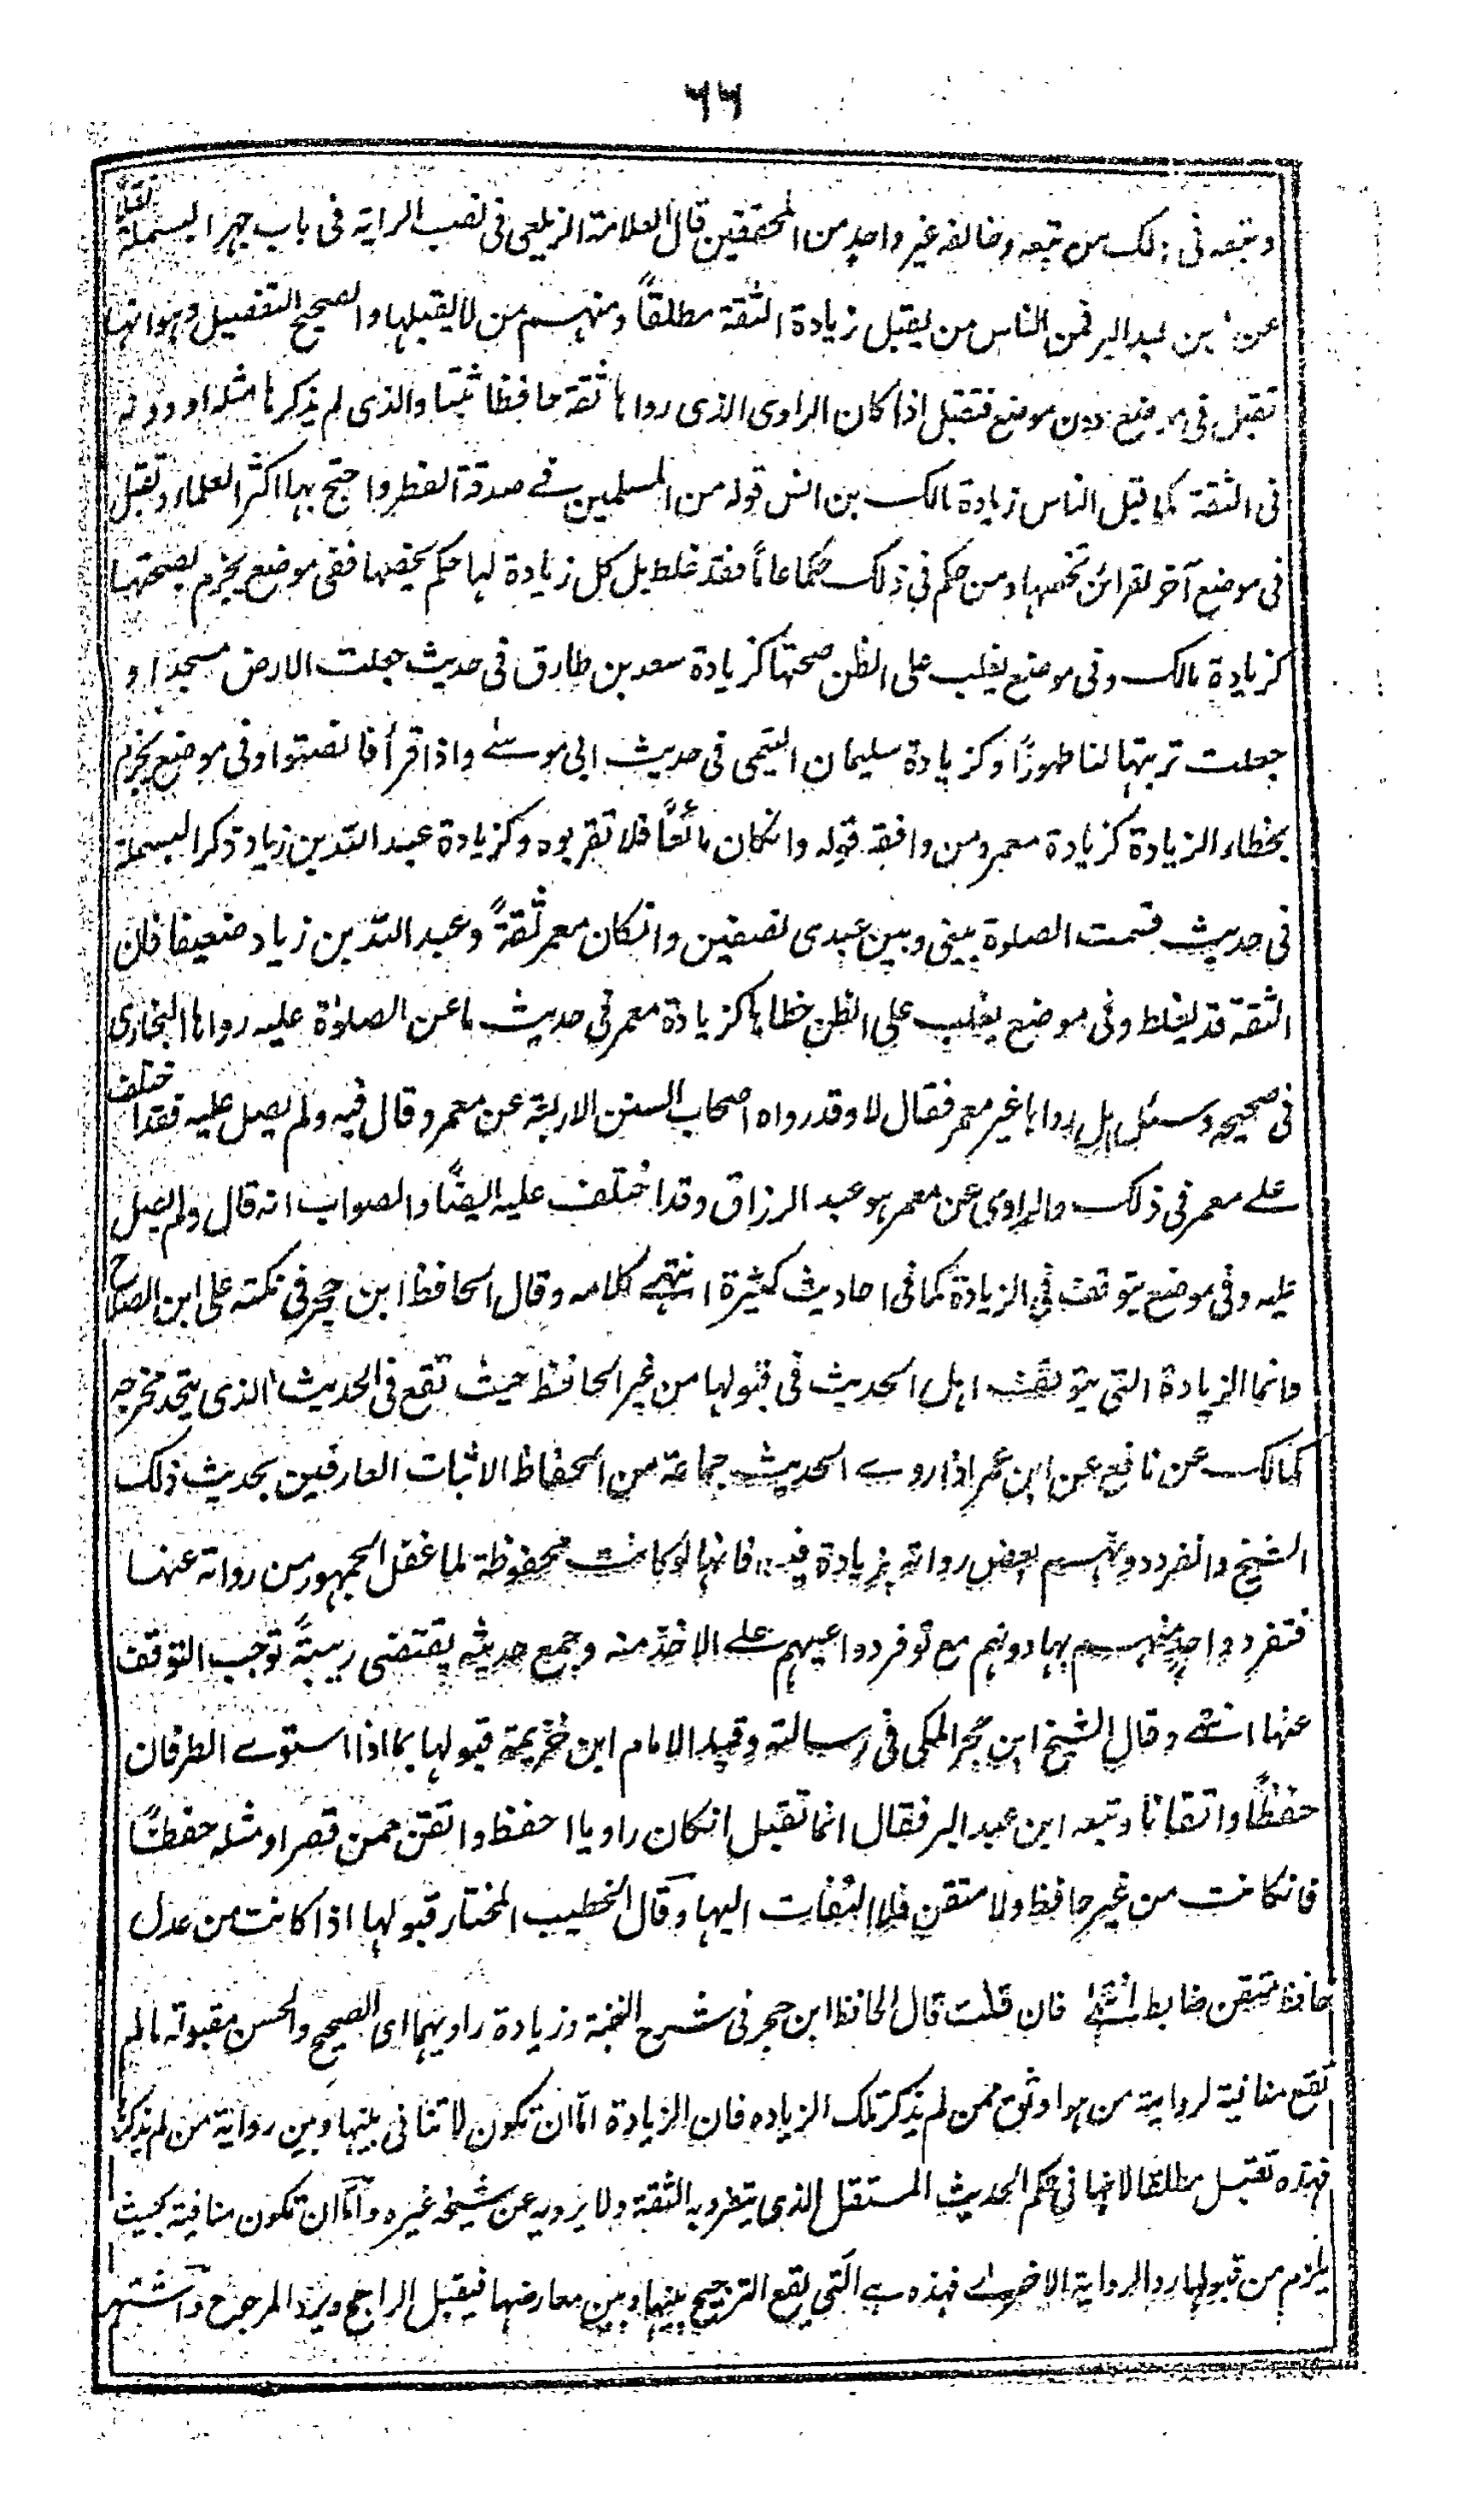 ٦٦
وتبعه فى ذلك من تبعه وخالفه غير واحد من المحققين قال العلامة الزيلعى فى نصب الراية فى باب جهر البسملة نقلا
عن ابن عبد البر فمن الناس من يقبل زيادة الثقة مطلقاً ومنهم من لا يقبلها والصحيح التفصيل وهو انها
تقبل فى موضع دون موضع فتقبل اذا كان الراوى الذى رواها ثقة حافظا ثبتا والذى لم يذكرها مثله او دونه
فى الثقة كما قبل الناس زيادة مالك بن انس قوله من المسلمين فے صدقة الفطر واحتج بها اكثر العلماء وتقبل
فى موضع آخر لقرائن تخصها ومن حكم فى ذلك حكما عاماً فقد غلط بل كل زيادة لها حكم يخصها ففى موضع يجزم بصحتها
كزيادة مالك وفى موضع يغلب على الظن صحتها كزيادة سعد بن طارق فى حديث جعلت الارض مسجدا و
جعلت تربتها لنا طهورًا وكزيادة سليمان التيمى فى حديث ابى موسےٰ واذا قرأ فانصتوا وفى موضع يجزم
بخطاء الزيادة كزيادة معمر ومن وافقه قوله وانكان مائعاً فلا تقربوه وكزيادة عبد الله بن زياد ذكر البسملة
فى حديث قسمت الصلوة بينى وبين عبدى نصفين وانكان معمر ثقةً وعبد الله بن زياد ضعيفا فان
الثقة قد يغلط وفى موضع يغلب على الظن خطاها كزيادة معمر فى حديث ماعز الصلوٰة عليه رواها البخارى
فى صحيحه وسئل هل رواها غير معمر فقال لا وقد رواه اصحاب السنن الاربعة عن معمر وقال فيه ولم يصل عليه فقد اختلف
علے معمر فى ذلك والراوى عن معمر هو عبد الرزاق وقد اختلف عليه ايضًا والصواب انه قال ولم يصل
عليه وفى موضع يتوقف فى الزيادة كما فى احاديث كثيرة انتهے كلامه وقال الحافظ ابن حجر فى نكته على ابن الصلاح
وانما الزيادة التى يتوقف اهل الحديث فى قبولها من غير الحافظ حيث تقع فى الحديث الذى يتحد مخرجه
كمالك عن نافع عن ابن عمر اذا روے الحديث جماعة من الحفاظ الاثبات العارفين بحديث ذلك
الشيخ وانفرد دونهم بعض رواته بزيادة فيه فانها لو كانت محفوظة لما غفل الجمهور من رواته عنها
فتفرد واحد منهم بها دونهم مع توفر دواعيهم علے الاخذ منه وجمع حديثه يقتضى ريبةً توجب التوقف
عنها انتهے وقال الشيخ ابن حجر المكى فى رسالته وقيد الامام ابن خزيمة قبولها بما اذا استوے الطرفان
حفظًا واتقانا وتبعه ابن عبد البر فقال انما تقبل انكان راويا احفظ واتقن ممن قصر او مثله حفظًا
فانكانت من غير حافظ ولا متقن فلا التفات اليها وقال الخطيب المختار قبولها اذا كانت من عدل
حافظ متقن ضابط انتهے فان قلت قال الحافظ ابن حجر فى شرح النخبة وزيادة راويهما اى الصحيح والحسن مقبولة مالم
تقع منافية لرواية من هو اوثق ممن لم يذكر تلك الزياده فان الزيادة امّا ان تكون لا تنافى بينها وبين رواية من لم يذكرها
فهذه تقبل مطلقا لانها فى حكم الحديث المستقل الذى يتفرد به الثقة ولا يرويه عن شيخه غيره وامّا ان تكون منافية بحيث
يلزم من قبولها رد الرواية الاخرےٰ فهذه هے التى يقع الترجيح بينها وبين معارضها فيقبل الراجح ويرد المرجوح واشتهر